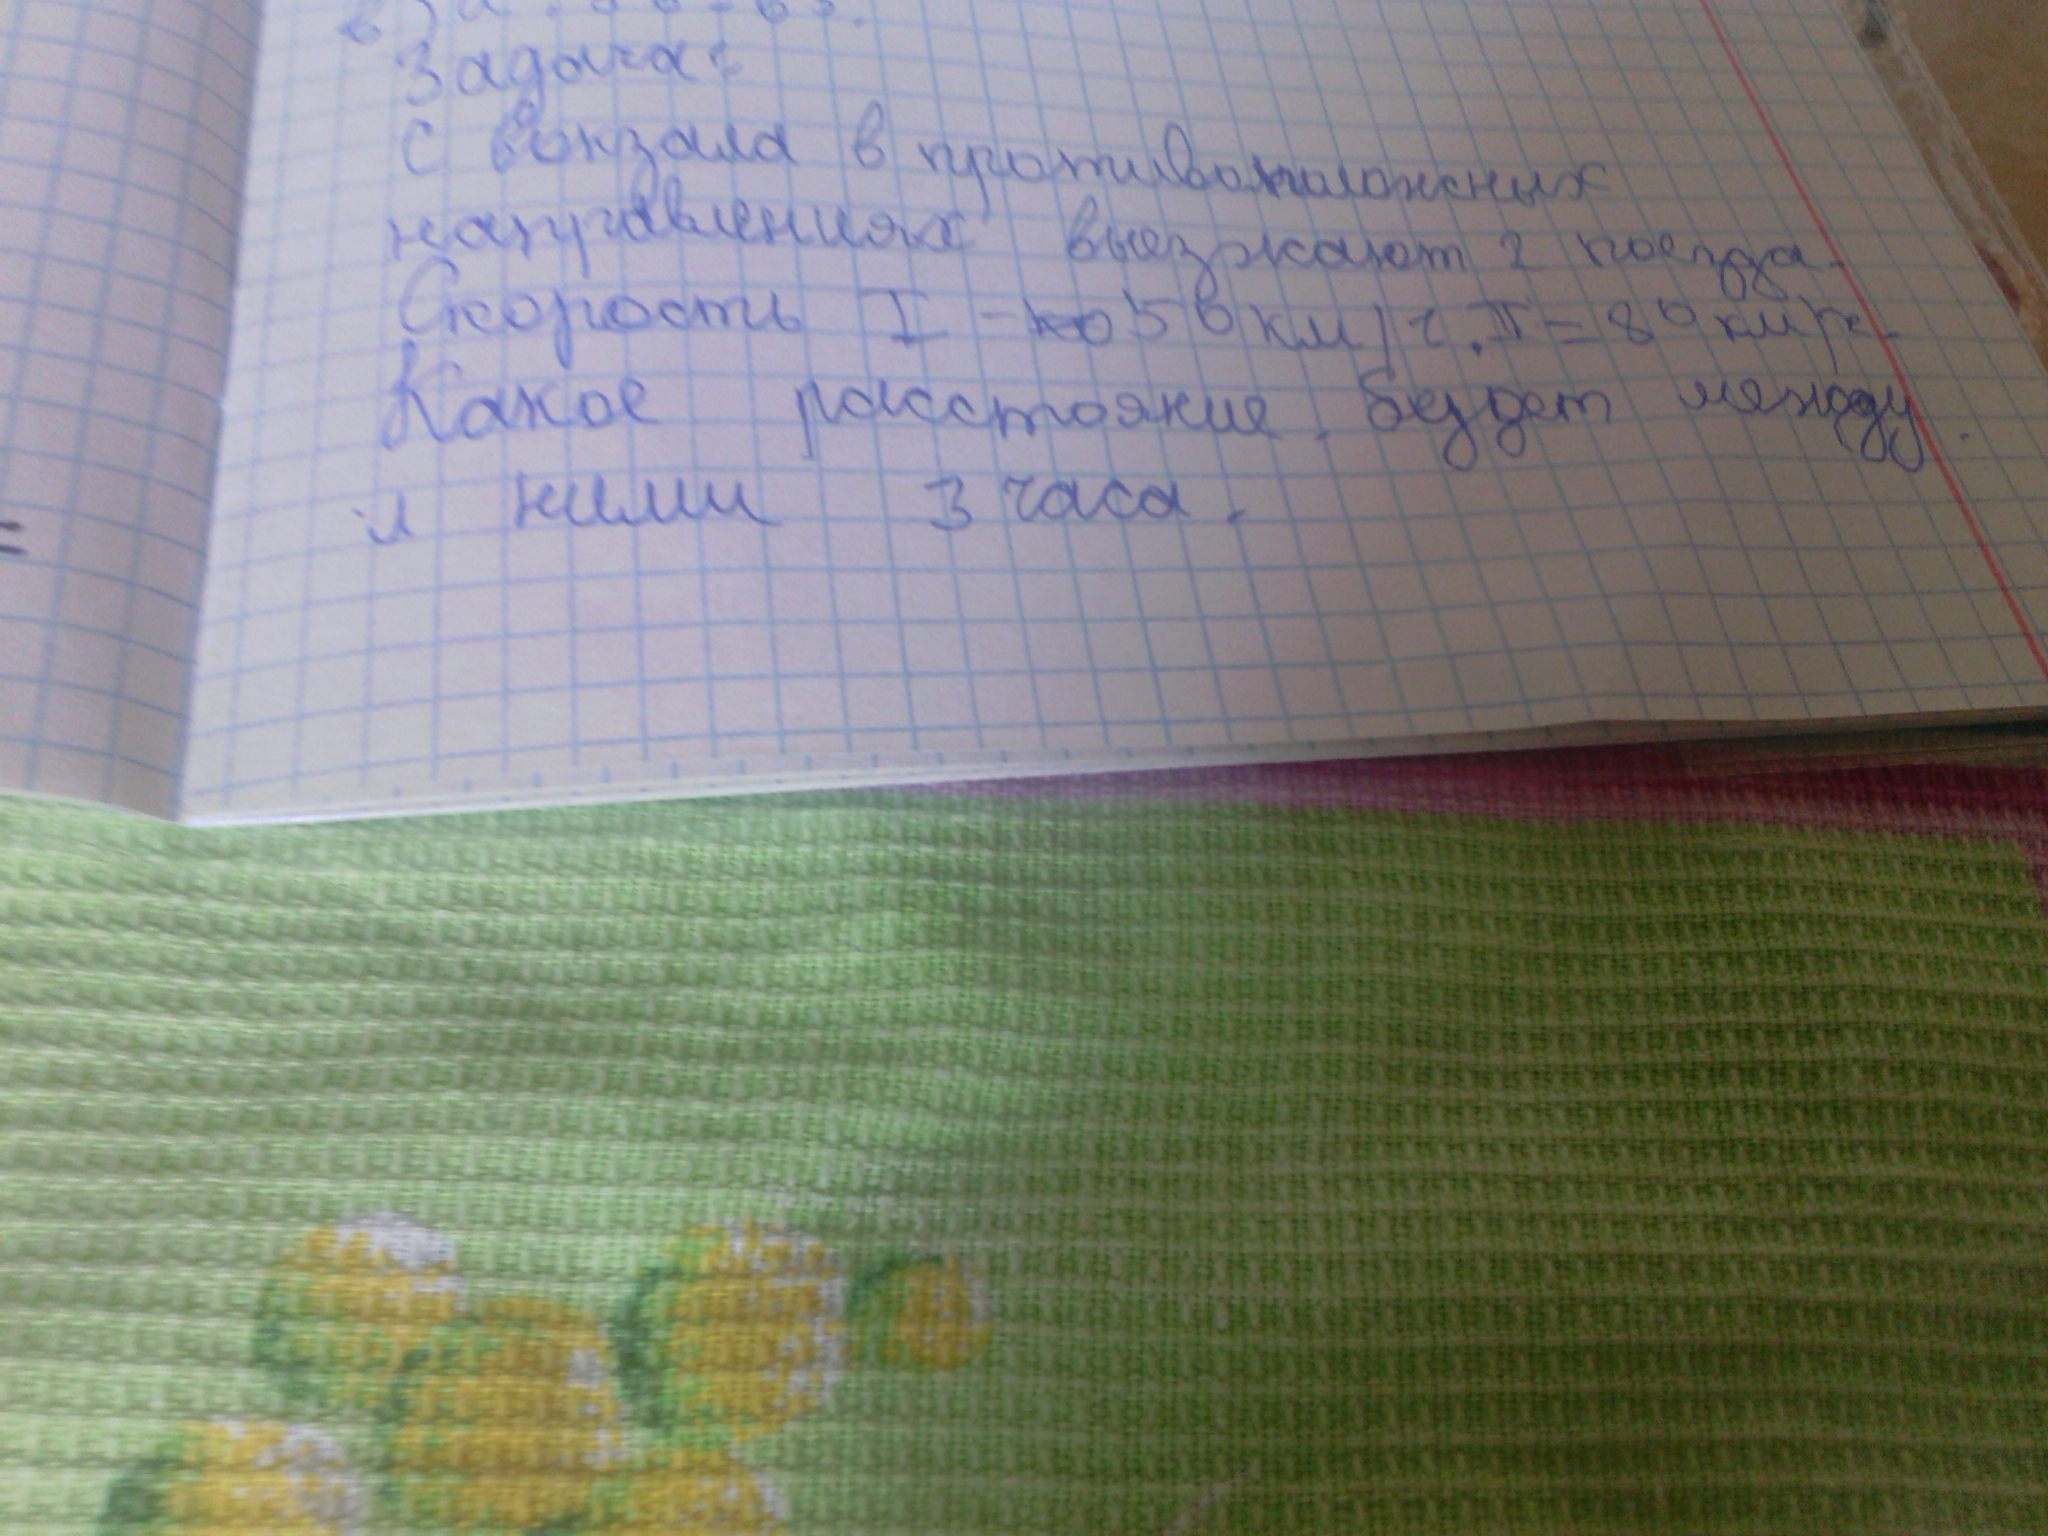 Задача:
С вокзала в противоположных
направлениях выезжают 2 поезда.
Скорость I - 56 км/ч. II = 80 км/ч.
Какое расстояние будет между
ними 3 часа.